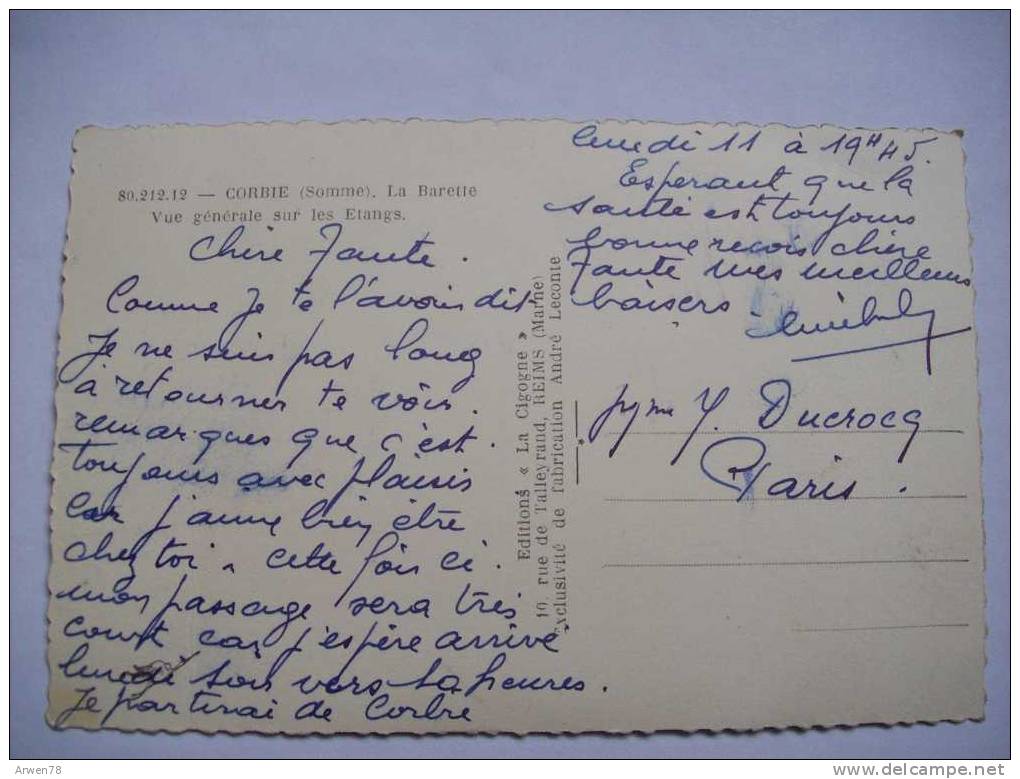 80.212.12 — CORBIE (Somme). La Barette
Vue générale sur les Etangs.
Chère Tante.
Comme Je te l'avais dit
Je ne suis pas long
à retourner te voir.
remarques que c'est.
toujours avec plaisir
car j'aime bien être
chez toi. cette fois ci.
mon passage sera très
court car j'espère arrivé
lundi soir vers heures.
Je partirai de Corbie
lundi 11 à 19H45.
Esperant que la
santé est toujours
bonne recois chère
Tante mes meilleurs
baisers
Editions « La Cigogne »
10, rue de Talleyrand, REIMS (Marne)
Exclusivité de fabrication André Leconte
Y. Ducrocq
Paris.
Arwen78
delcampe.net